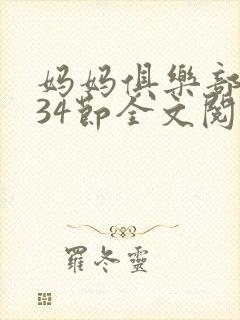 妈妈俱樂部
34節全文閱
羅冬靈